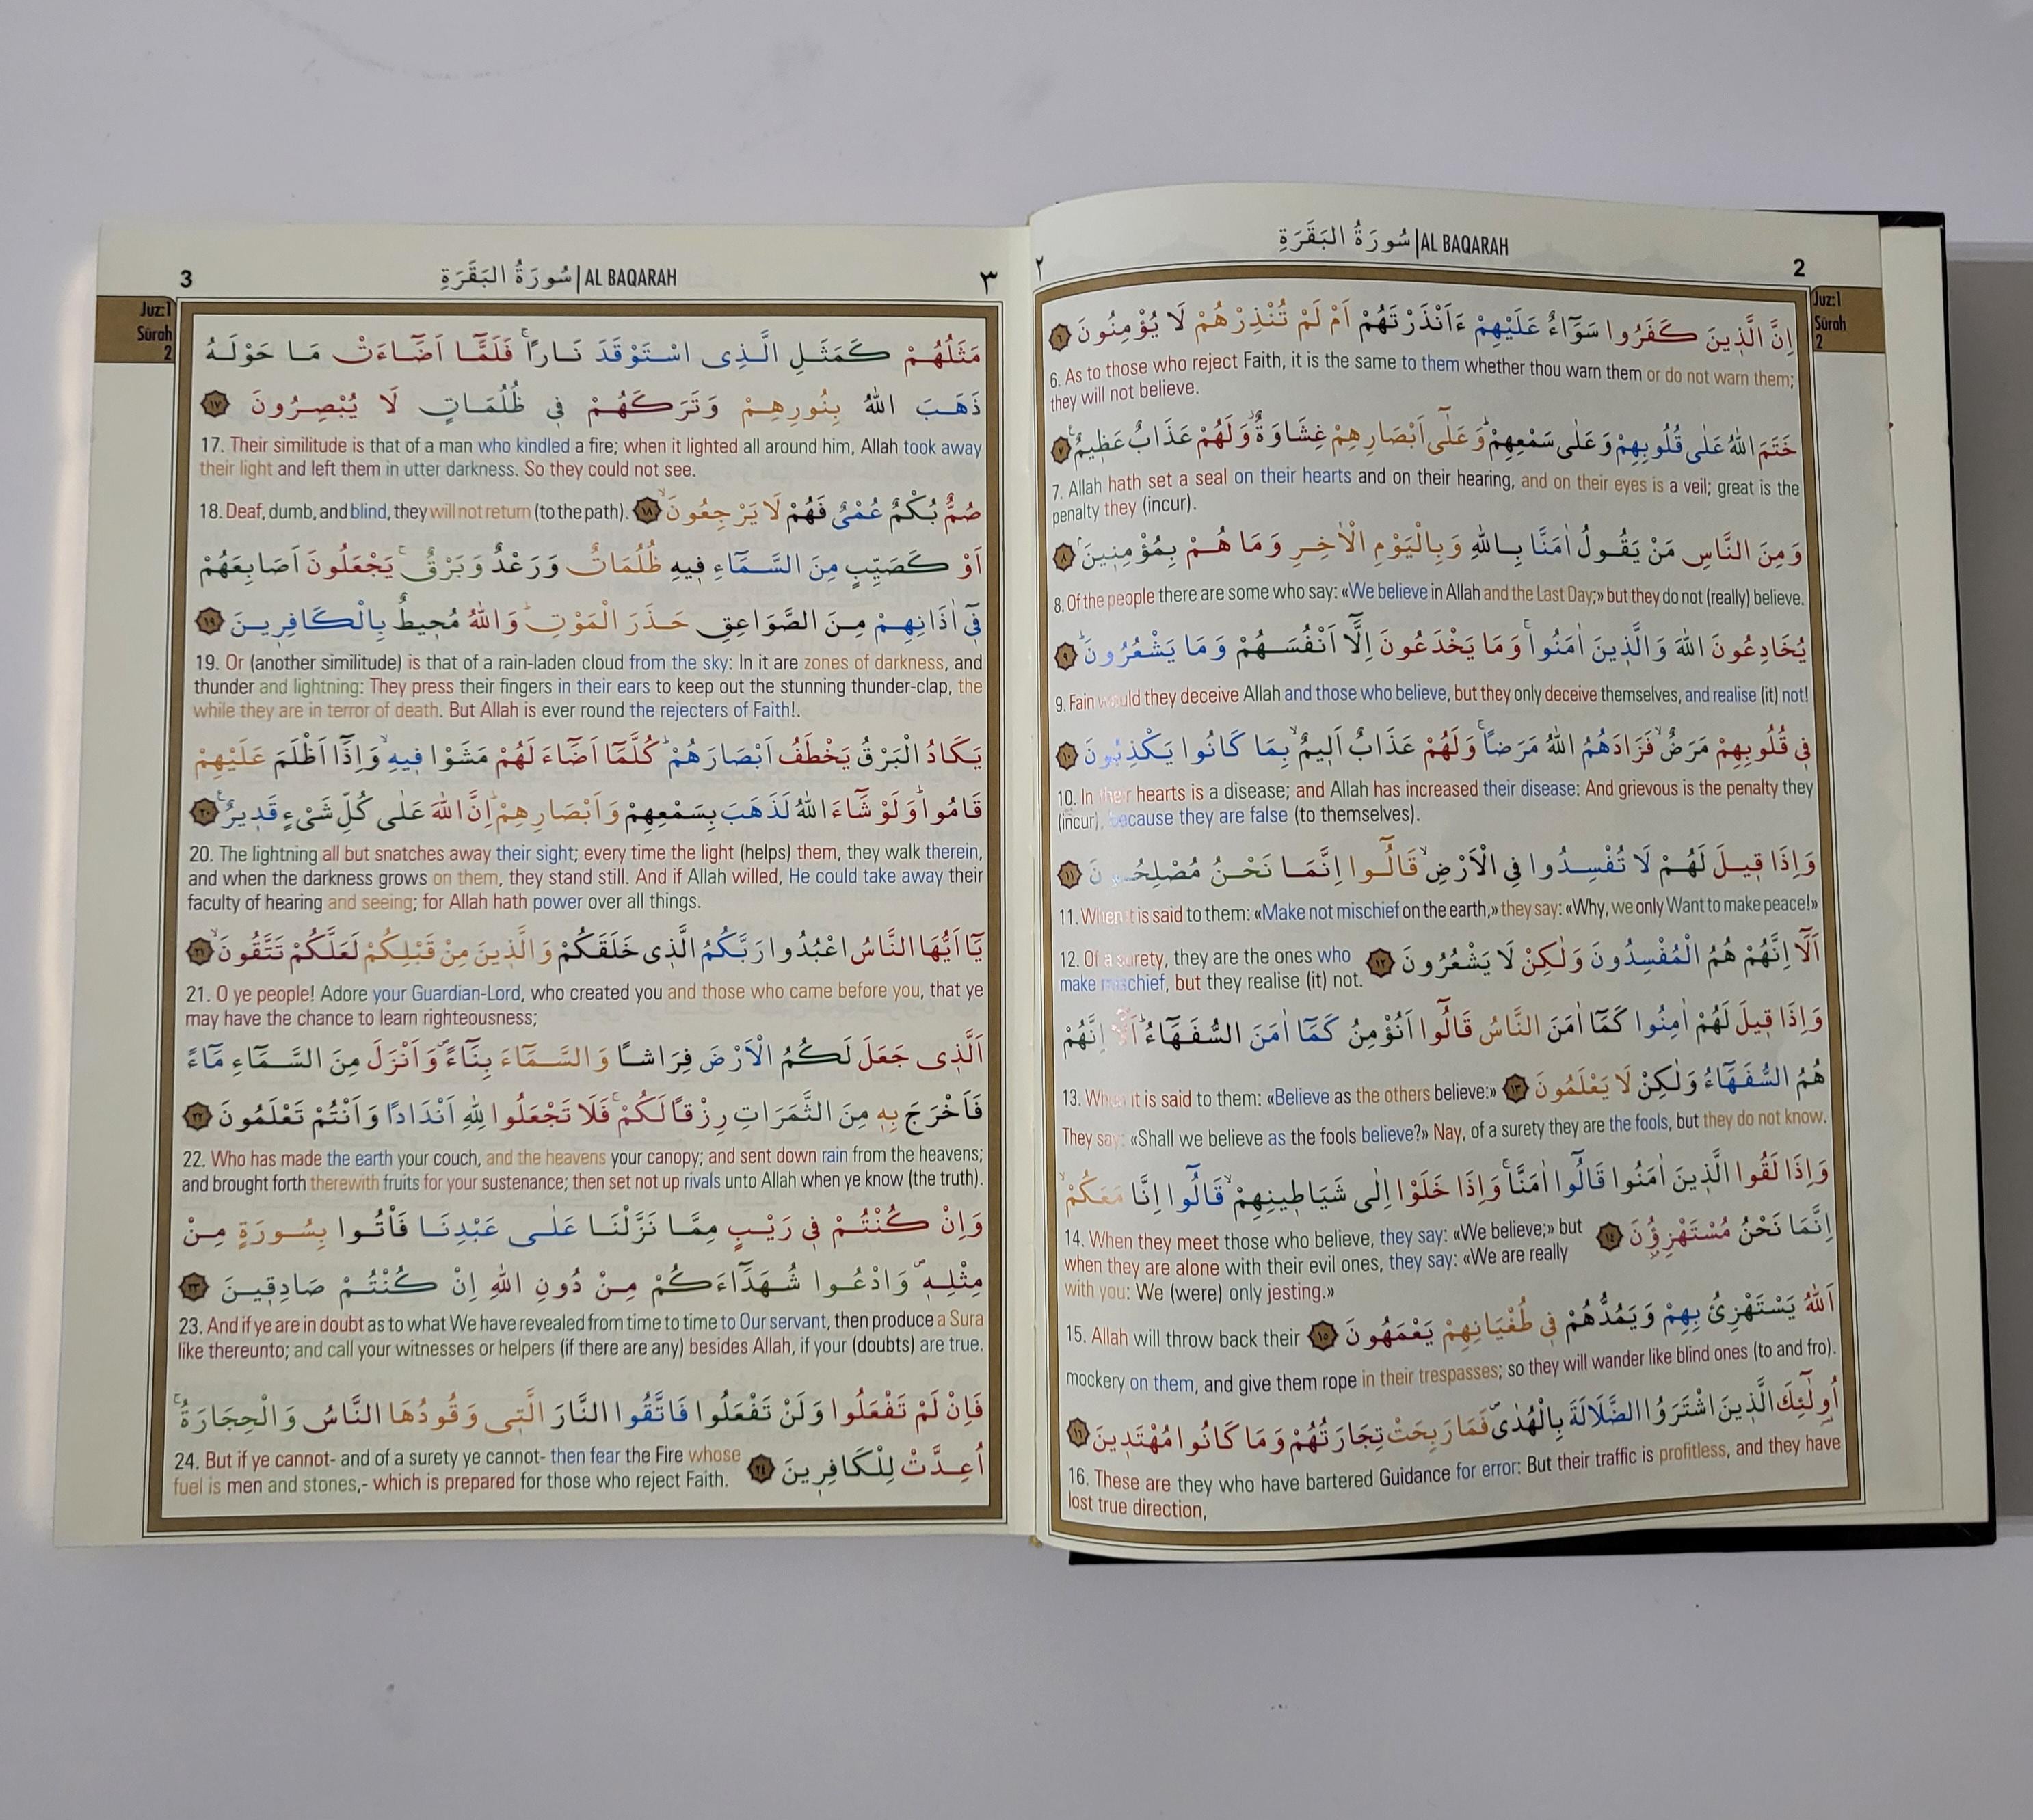 سُورَةُ البَقَرَةِ | AL BAQARAH
٢
2
Juz:1
Sûrah
2
اِنَّ الَّذٖينَ كَفَرُوا سَوَٓاءٌ عَلَيْهِمْ ءَاَنْذَرْتَهُمْ اَمْ لَمْ تُنْذِرْهُمْ لَا يُؤْمِنُونَ ﴿٦﴾
6. As to those who reject Faith, it is the same to them whether thou warn them or do not warn them;
they will not believe.
خَتَمَ اللّٰهُ عَلٰى قُلُوبِهِمْ وَعَلٰى سَمْعِهِمْۜ وَعَلٰٓى اَبْصَارِهِمْ غِشَاوَةٌۘ وَلَهُمْ عَذَابٌ عَظٖيمٌࣖ ﴿٧﴾
7. Allah hath set a seal on their hearts and on their hearing, and on their eyes is a veil; great is the
penalty they (incur).
وَمِنَ النَّاسِ مَنْ يَقُولُ اٰمَنَّا بِاللّٰهِ وَبِالْيَوْمِ الْاٰخِرِ وَمَا هُمْ بِمُؤْمِنٖينَۘ ﴿٨﴾
8. Of the people there are some who say: «We believe in Allah and the Last Day;» but they do not (really) believe.
يُخَادِعُونَ اللّٰهَ وَالَّذٖينَ اٰمَنُواۚ وَمَا يَخْدَعُونَ اِلَّٓا اَنْفُسَهُمْ وَمَا يَشْعُرُونَۜ ﴿٩﴾
9. Fain would they deceive Allah and those who believe, but they only deceive themselves, and realise (it) not!
فٖى قُلُوبِهِمْ مَرَضٌۙ فَزَادَهُمُ اللّٰهُ مَرَضًاۚ وَلَهُمْ عَذَابٌ اَلٖيمٌۙ بِمَا كَانُوا يَكْذِبُونَ ﴿١٠﴾
10. In their hearts is a disease; and Allah has increased their disease: And grievous is the penalty they
(incur), because they are false (to themselves).
وَاِذَا قٖيلَ لَهُمْ لَا تُفْسِدُوا فِى الْاَرْضِۙ قَالُٓوا اِنَّمَا نَحْنُ مُصْلِحُونَ ﴿١١﴾
11. When it is said to them: «Make not mischief on the earth,» they say: «Why, we only Want to make peace!»
اَلَٓا اِنَّهُمْ هُمُ الْمُفْسِدُونَ وَلٰكِنْ لَا يَشْعُرُونَ ﴿١٢﴾ 12. Of a surety, they are the ones who
make mischief, but they realise (it) not.
وَاِذَا قٖيلَ لَهُمْ اٰمِنُوا كَمَٓا اٰمَنَ النَّاسُ قَالُٓوا اَنُؤْمِنُ كَمَٓا اٰمَنَ السُّفَهَٓاءُۜ اَلَٓا اِنَّهُمْ
هُمُ السُّفَهَٓاءُ وَلٰكِنْ لَا يَعْلَمُونَ ﴿١٣﴾ 13. When it is said to them: «Believe as the others believe:»
They say: «Shall we believe as the fools believe?» Nay, of a surety they are the fools, but they do not know.
وَاِذَا لَقُوا الَّذٖينَ اٰمَنُوا قَالُٓوا اٰمَنَّاۚ وَاِذَا خَلَوْا اِلٰى شَيَاطٖينِهِمْۙ قَالُٓوا اِنَّا مَعَكُمْۙ
اِنَّمَا نَحْنُ مُسْتَهْزِؤُ۫نَ ﴿١٤﴾ 14. When they meet those who believe, they say: «We believe;» but
when they are alone with their evil ones, they say: «We are really
with you: We (were) only jesting.»
اَللّٰهُ يَسْتَهْزِئُ بِهِمْ وَيَمُدُّهُمْ فٖى طُغْيَانِهِمْ يَعْمَهُونَ ﴿١٥﴾ 15. Allah will throw back their
mockery on them, and give them rope in their trespasses; so they will wander like blind ones (to and fro).
اُو۬لٰٓئِكَ الَّذٖينَ اشْتَرَوُا الضَّلَالَةَ بِالْهُدٰىࣕ فَمَا رَبِحَتْ تِجَارَتُهُمْ وَمَا كَانُوا مُهْتَدٖينَ ﴿١٦﴾
16. These are they who have bartered Guidance for error: But their traffic is profitless, and they have
lost true direction,
3
سُورَةُ البَقَرَةِ | AL BAQARAH
٣
Juz:1
Sûrah
2
مَثَلُهُمْ كَمَثَلِ الَّذِى اسْتَوْقَدَ نَارًاۚ فَلَمَّٓا اَضَٓاءَتْ مَا حَوْلَهُ
ذَهَبَ اللّٰهُ بِنُورِهِمْ وَتَرَكَهُمْ فٖى ظُلُمَاتٍ لَا يُبْصِرُونَ ﴿١٧﴾
17. Their similitude is that of a man who kindled a fire; when it lighted all around him, Allah took away
their light and left them in utter darkness. So they could not see.
صُمٌّ بُكْمٌ عُمْىٌ فَهُمْ لَا يَرْجِعُونَۙ ﴿١٨﴾ 18. Deaf, dumb, and blind, they will not return (to the path).
اَوْ كَصَيِّبٍ مِنَ السَّمَٓاءِ فٖيهِ ظُلُمَاتٌ وَرَعْدٌ وَبَرْقٌۚ يَجْعَلُونَ اَصَابِعَهُمْ
فٖٓى اٰذَانِهِمْ مِنَ الصَّوَاعِقِ حَذَرَ الْمَوْتِۜ وَاللّٰهُ مُحٖيطٌ بِالْكَافِرٖينَ ﴿١٩﴾
19. Or (another similitude) is that of a rain-laden cloud from the sky: In it are zones of darkness, and
thunder and lightning: They press their fingers in their ears to keep out the stunning thunder-clap, the
while they are in terror of death. But Allah is ever round the rejecters of Faith!.
يَكَادُ الْبَرْقُ يَخْطَفُ اَبْصَارَهُمْۜ كُلَّمَٓا اَضَٓاءَ لَهُمْ مَشَوْا فٖيهِۙ وَاِذَٓا اَظْلَمَ عَلَيْهِمْ
قَامُواۜ وَلَوْ شَٓاءَ اللّٰهُ لَذَهَبَ بِسَمْعِهِمْ وَاَبْصَارِهِمْۜ اِنَّ اللّٰهَ عَلٰى كُلِّ شَىْءٍ قَدٖيرٌࣖ ﴿٢٠﴾
20. The lightning all but snatches away their sight; every time the light (helps) them, they walk therein,
and when the darkness grows on them, they stand still. And if Allah willed, He could take away their
faculty of hearing and seeing; for Allah hath power over all things.
يَٓا اَيُّهَا النَّاسُ اعْبُدُوا رَبَّكُمُ الَّذٖى خَلَقَكُمْ وَالَّذٖينَ مِنْ قَبْلِكُمْ لَعَلَّكُمْ تَتَّقُونَۙ ﴿٢١﴾
21. O ye people! Adore your Guardian-Lord, who created you and those who came before you, that ye
may have the chance to learn righteousness;
اَلَّذٖى جَعَلَ لَكُمُ الْاَرْضَ فِرَاشًا وَالسَّمَٓاءَ بِنَٓاءًࣕ وَاَنْزَلَ مِنَ السَّمَٓاءِ مَٓاءً
فَاَخْرَجَ بِهٖ مِنَ الثَّمَرَاتِ رِزْقًا لَكُمْۚ فَلَا تَجْعَلُوا لِلّٰهِ اَنْدَادًا وَاَنْتُمْ تَعْلَمُونَ ﴿٢٢﴾
22. Who has made the earth your couch, and the heavens your canopy; and sent down rain from the heavens;
and brought forth therewith fruits for your sustenance; then set not up rivals unto Allah when ye know (the truth).
وَاِنْ كُنْتُمْ فٖى رَيْبٍ مِمَّا نَزَّلْنَا عَلٰى عَبْدِنَا فَأْتُوا بِسُورَةٍ مِنْ
مِثْلِهٖࣕ وَادْعُوا شُهَدَٓاءَكُمْ مِنْ دُونِ اللّٰهِ اِنْ كُنْتُمْ صَادِقٖينَ ﴿٢٣﴾
23. And if ye are in doubt as to what We have revealed from time to time to Our servant, then produce a Sura
like thereunto; and call your witnesses or helpers (if there are any) besides Allah, if your (doubts) are true.
فَاِنْ لَمْ تَفْعَلُوا وَلَنْ تَفْعَلُوا فَاتَّقُوا النَّارَ الَّتٖى وَقُودُهَا النَّاسُ وَالْحِجَارَةُۚ
اُعِدَّتْ لِلْكَافِرٖينَ ﴿٢٤﴾ 24. But if ye cannot- and of a surety ye cannot- then fear the Fire whose
fuel is men and stones,- which is prepared for those who reject Faith.